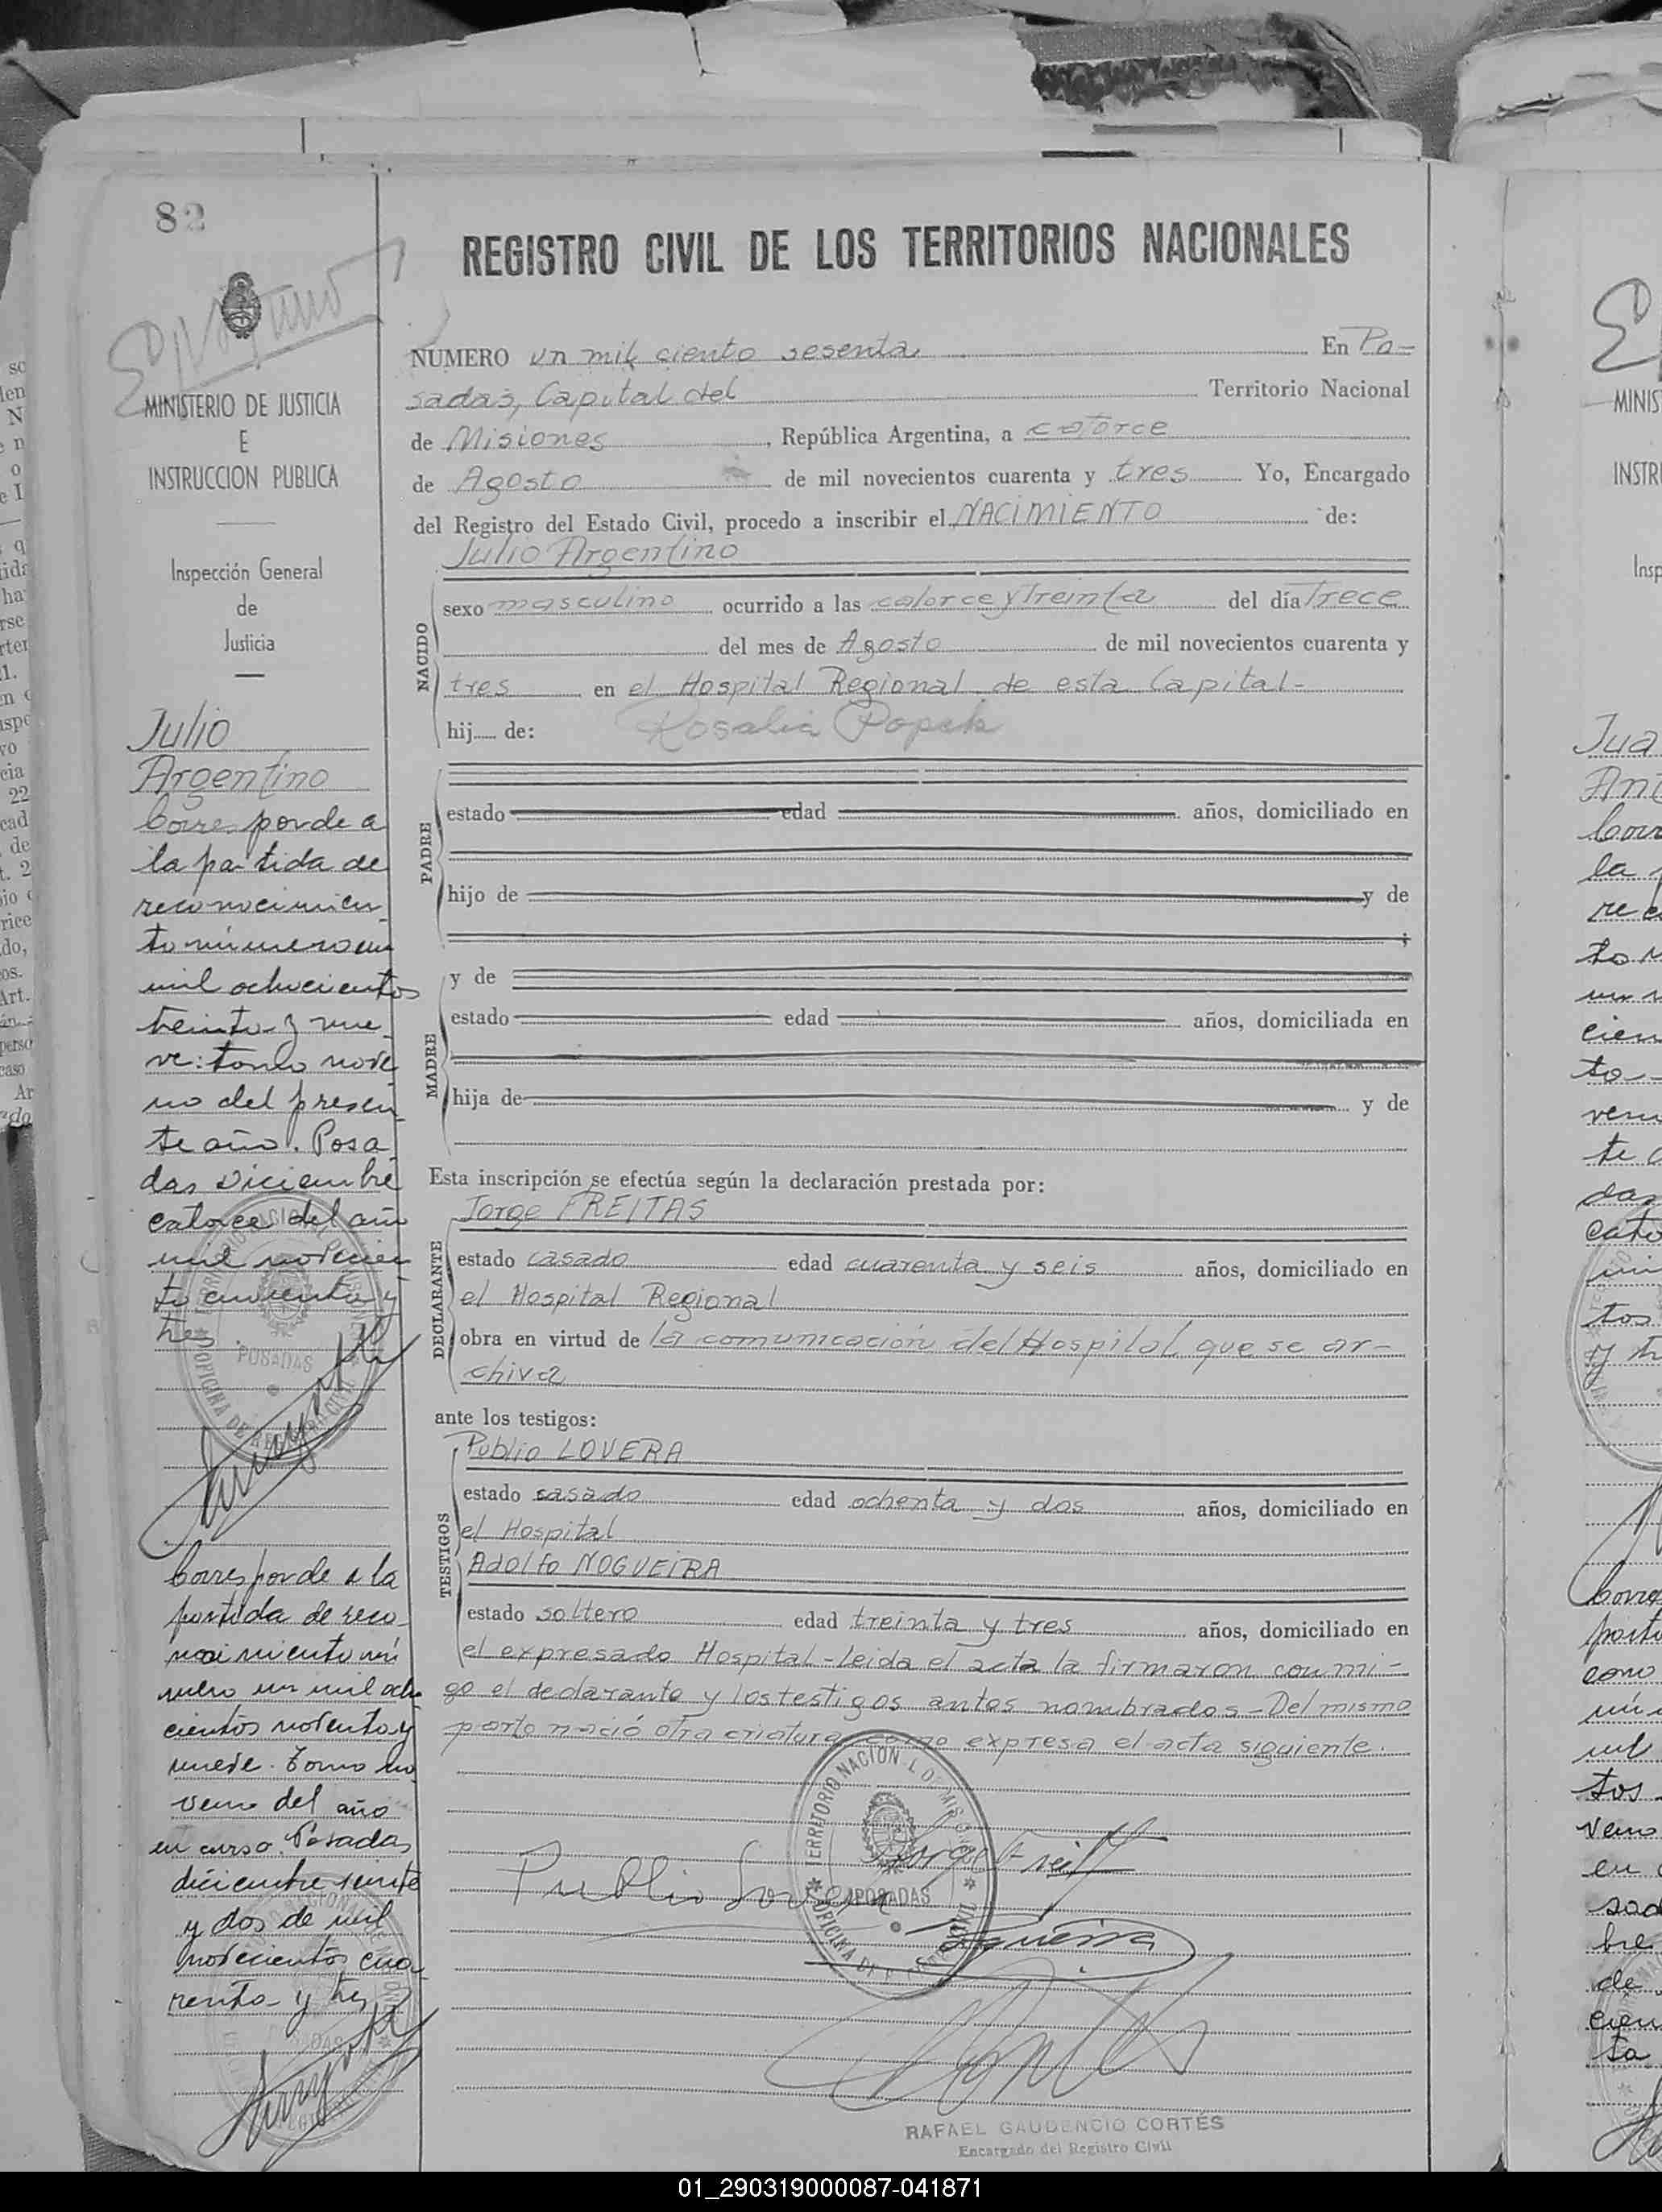 82
REGISTRO CIVIL DE LOS TERRITORIOS NACIONALES
MINISTERIO DE JUSTICIA
E
INSTRUCCION PUBLICA
Inspección General
de
Justicia
Julio
Argentino
Corresponde a
la partida de
reconocimien
to número un
mil ochocientos
treinta y nue
ve: tomo nove
no del presen
te año. Posa
das Diciembre
catorce del año
mil novecien
to cuarenta y
tres.
Corresponde a la
partida de reco
nocimiento nú
mero un mil ocho
cientos noventa y
nueve. Tomo no
veno del año
en curso. Posadas
diciembre veinte
y dos de mil
novecientos cua
renta y tres
NUMERO un mil ciento sesenta En Po-
sadas, Capital del Territorio Nacional
de Misiones, República Argentina, a catorce
de Agosto de mil novecientos cuarenta y tres Yo, Encargado
del Registro del Estado Civil, procedo a inscribir el NACIMIENTO de:
Julio Argentino
NACIDO
sexo masculino ocurrido a las catorce y Treinta del día Trece
del mes de Agosto de mil novecientos cuarenta y
tres en el Hospital Regional de esta Capital-
hij de: Rosalia Popek
PADRE
estado edad años, domiciliado en
hijo de y de
;
MADRE
y de
estado edad años, domiciliada en
hija de y de
Esta inscripción se efectúa según la declaración prestada por:
Jorge FREITAS
DECLARANTE
estado casado edad cuarenta y seis años, domiciliado en
el Hospital Regional
obra en virtud de la comunicación del Hospital que se ar-
chiva
ante los testigos:
TESTIGOS
Publio LOVERA
estado casado edad ochenta y dos años, domiciliado en
el Hospital
Adolfo NOGUEIRA
estado soltero edad treinta y tres años, domiciliado en
el expresado Hospital-leida el acta la firmaron conmi-
go el declarante y los testigos antes nombrados-Del mismo
parto nació otra criatura como expresa el acta siguiente.
TERRITORIO NACIONAL DE MISIONES
POSADAS
OFICINA DE REGISTRO CIVIL
Publio Lovera
RAFAEL GAUDENCIO CORTÉS
Encargado del Registro Civil
01_290319000087-041871